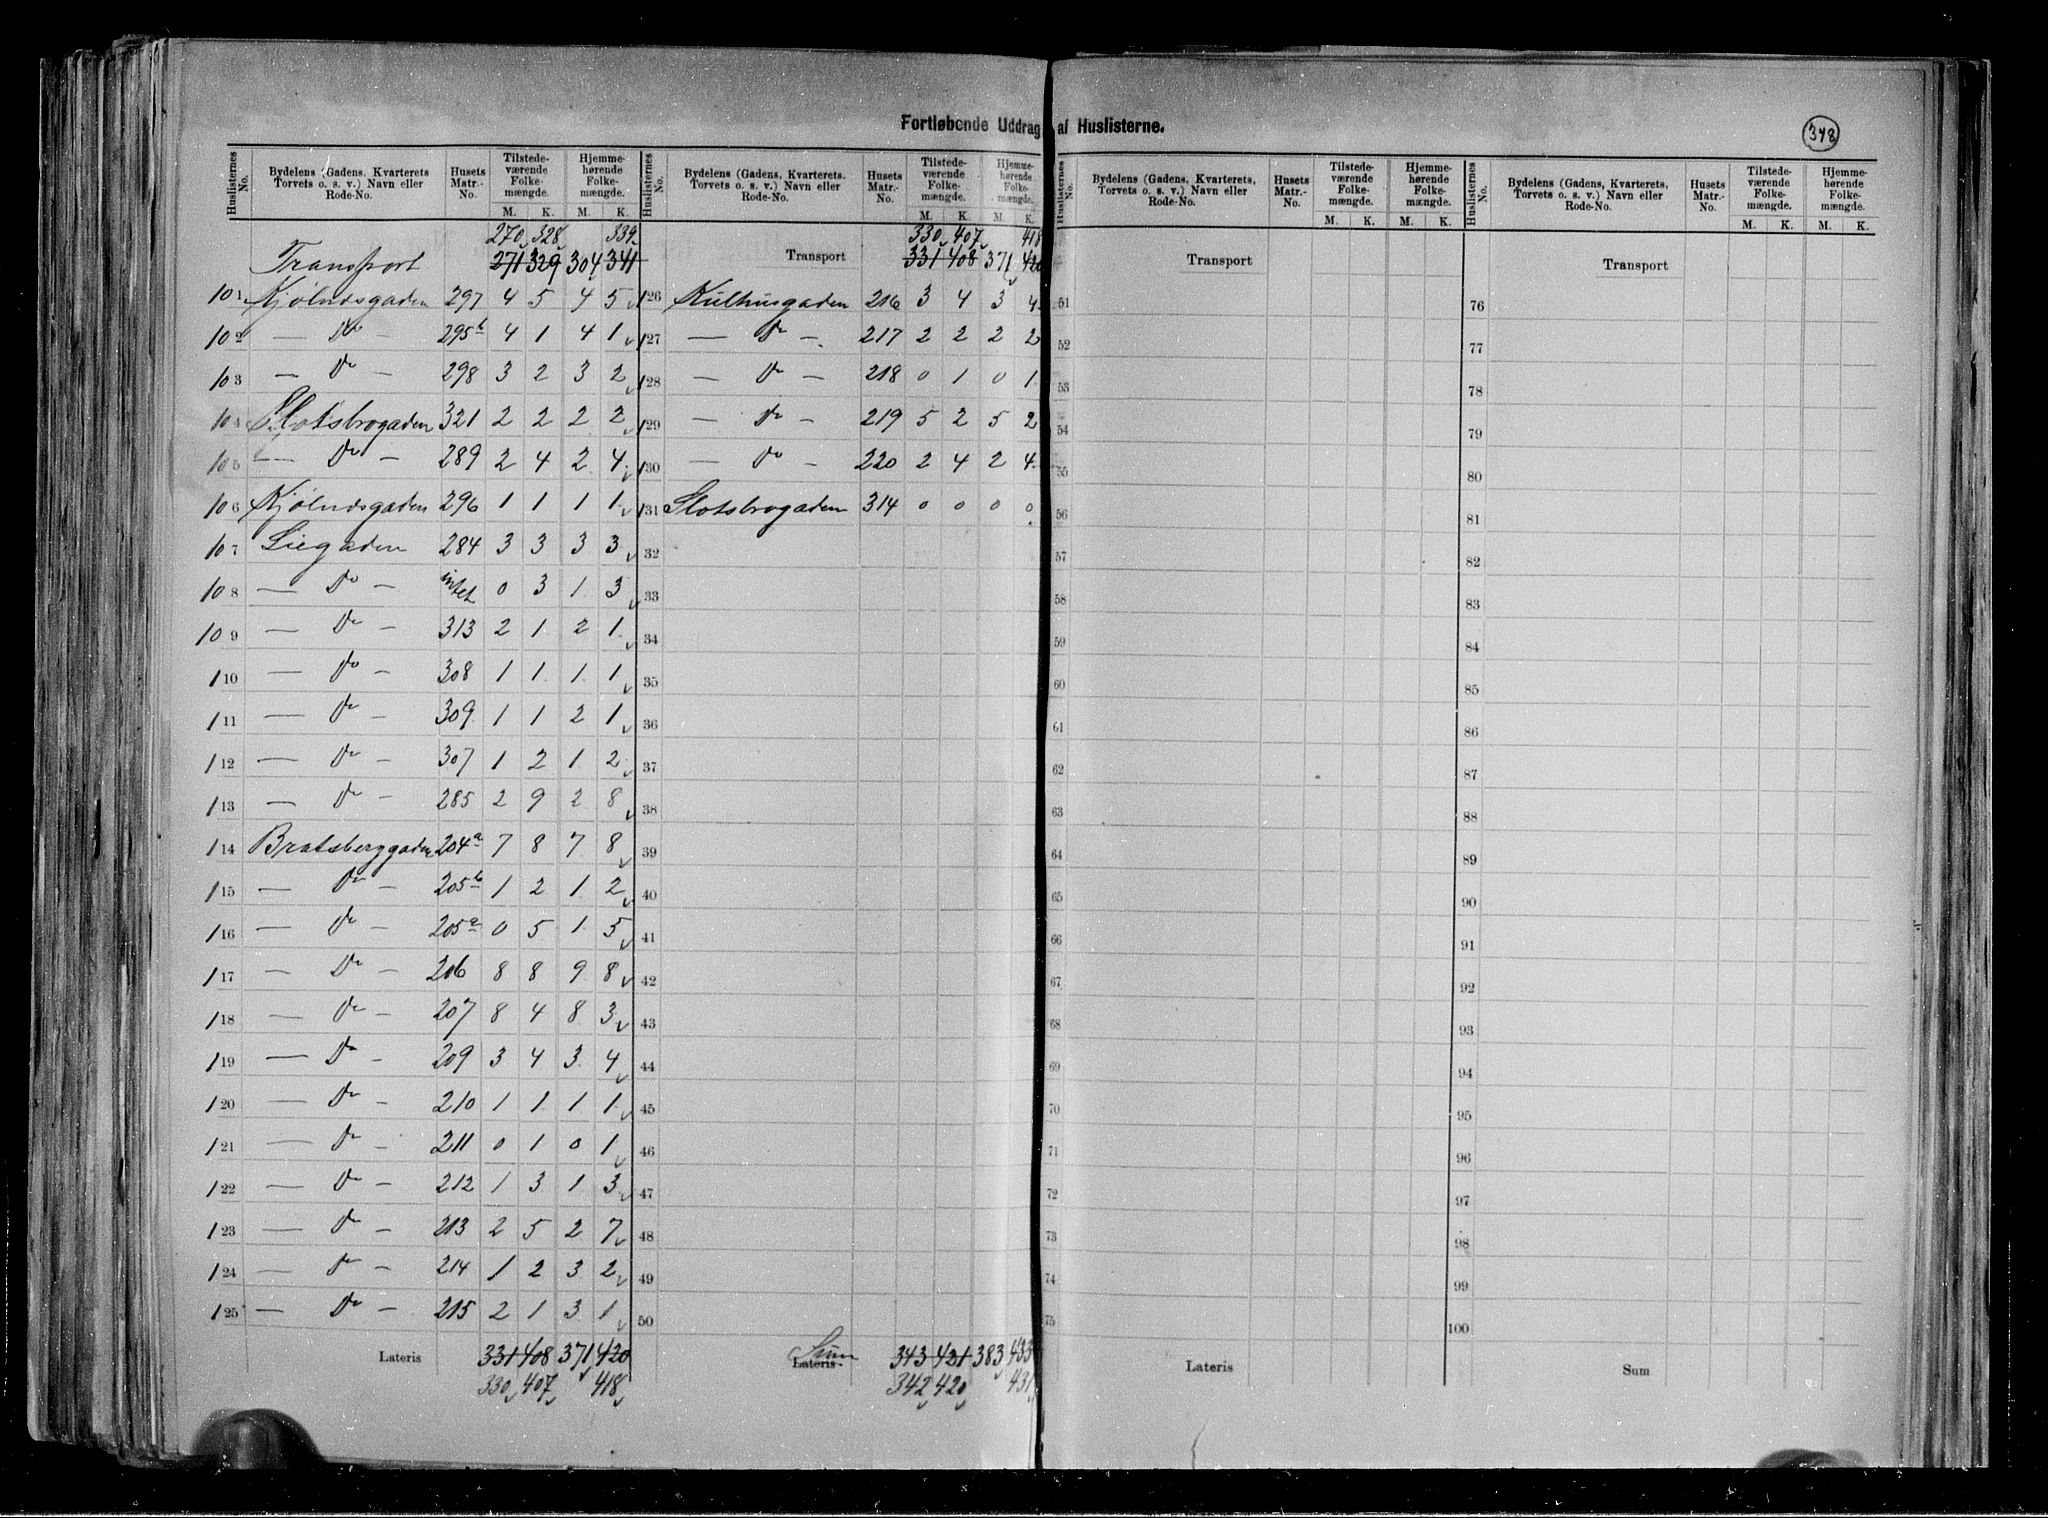 Fortløbende Uddrag af Huslisterne.
378
Huslisternes No. Bydelens (Gadens, Kvarterets Torvets o. s. v.) Navn eller Rode-No. Husets Matr.-No. Tilstedeværende Folkemængde. M. K. Hjemmehørende Folkemængde. M. K.
270 328 339
Transport 271 329 304 341
101 Kjølnæsgaden 297 4 5 4 5
102 — Do — 295b 4 1 4 1
103 — Do — 298 3 2 3 2
104 Slotsbrogaden 321 2 2 2 2
105 — Do — 289 2 4 2 4
106 Kjølnæsgaden 296 1 1 1 1
107 Liegaden 284 3 3 3 3
108 — Do — intet 0 3 1 3
109 — Do — 313 2 1 2 1
110 — Do — 308 1 1 1 1
111 — Do — 309 1 1 2 1
112 — Do — 307 1 2 1 2
113 — Do — 285 2 9 2 8
114 Bratsberggaden 204a 7 8 7 8
115 — Do — 205b 1 2 1 2
116 — Do — 205a 0 5 1 5
117 — Do — 206 8 8 9 8
118 — Do — 207 8 4 8 3
119 — Do — 209 3 4 3 4
120 — Do — 210 1 1 1 1
121 — Do — 211 0 1 0 1
122 — Do — 212 1 3 1 3
123 — Do — 213 2 5 2 7
124 — Do — 214 1 2 3 2
125 — Do — 215 2 1 3 1
Lateris 331 408 371 420
330 407 418
Huslisternes No. Bydelens (Gadens, Kvarterets. Torvets o. s. v.) Navn eller Rode-No. Husets Matr.-No. Tilstedeværende Folkemængde. M. K. Hjemmehørende Folkemængde. M. K.
330 407 418
Transport 331 408 371 420
126 Kulhusgaden 216 3 4 3 4
127 — Do — 217 2 2 2 2
128 — Do — 218 0 1 0 1
129 — Do — 219 5 2 5 2
130 — Do — 220 2 4 2 4
131 Slotsbrogaden 314 0 0 0 0
32
33
34
35
36
37
38
39
40
41
42
43
44
45
46
47
48
49
50
Sum
Lateris 343 421 383 433
342 420 431
Huslisternes No. Bydelens (Gadens, Kvarterets, Torvets o. s. v.) Navn eller Rode-No. Husets Matr.-No. Tilstedeværende Folkemængde. M. K. Hjemmehørende Folkemængde. M. K.
Transport
51
52
53
54
55
56
57
58
59
60
61
62
63
64
65
66
67
68
69
70
71
72
73
74
75
Lateris
Huslisternes No. Bydelens (Gadens, Kvarterets, Torvets o. s. v.) Navn eller Rode-No. Husets Matr.-No. Tilstedeværende Folkemængde. M. K. Hjemmehørende Folkemængde. M. K.
Transport
76
77
78
79
80
81
82
83
84
85
86
87
88
89
90
91
92
93
94
95
96
97
98
99
100
Sum